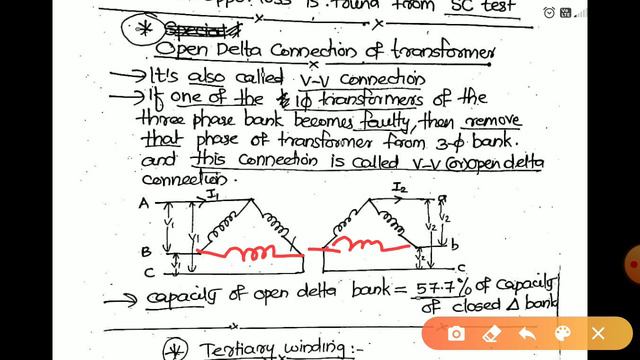 loss is found from SC test
* Special
Open Delta Connection of transformer
→ It's also called V-V connection
→ If one of the 1ϕ transformers of the
three phase bank becomes faulty, then remove
that phase of transformer from 3-ϕ bank.
and this connection is called V-V (or) open delta
connection.
A I1 I2 a
V1 V1 V2 V2
B b
V1 V2
C c
→ capacity of open delta bank = 57.7% of capacity
of closed Δ bank
* Tertiary winding:-